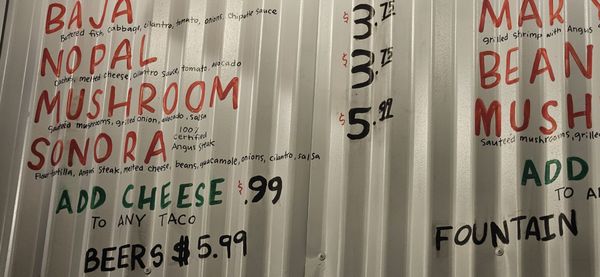 BAJA
Battered fish, cabbage, cilantro, tomato, onions, Chipotle sauce
$3.75
NOPAL
Cactus, melted cheese, cilantro sauce, tomato, avocado
$3.75
MUSHROOM
Sauteed mushrooms, grilled onion, avocado, salsa
$5.99
SONORA 100% Certified Angus Steak
Flour tortilla, Angus steak, melted cheese, beans, guacamole, onions, cilantro, salsa
ADD CHEESE $.99
TO ANY TACO
BEERS $5.99
MAR
grilled shrimp with Angus
BEAN
MUSH
Sauteed mushrooms, grille
ADD
TO A
FOUNTAIN